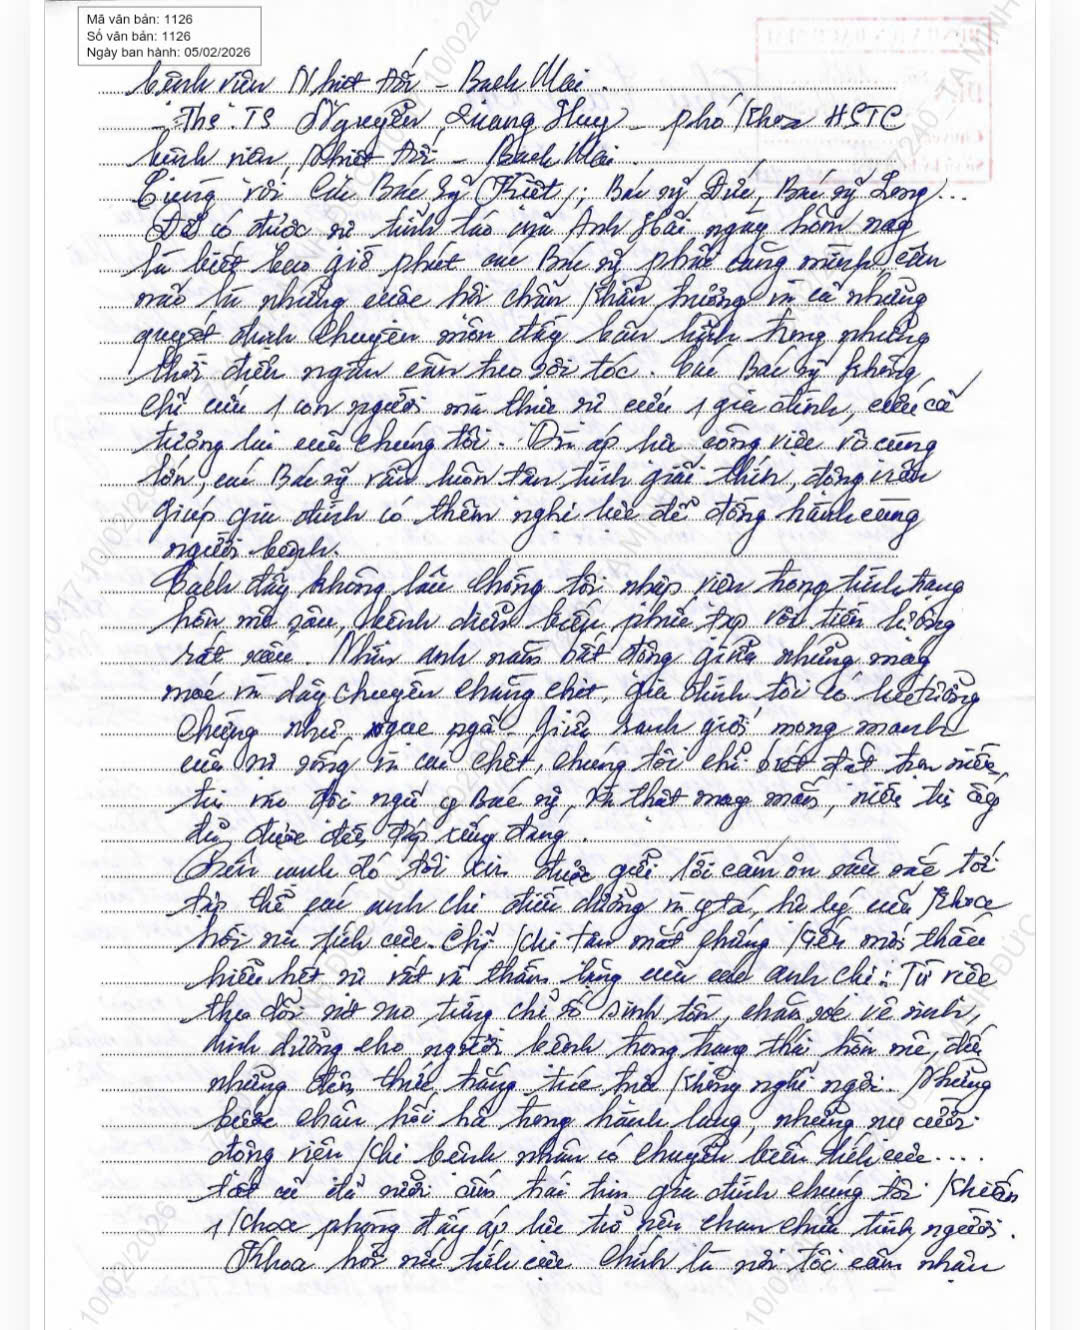 Mã văn bản: 1126
Số văn bản: 1126
Ngày ban hành: 05/02/2026
bệnh viện Nhiệt Đới - Bạch Mai.
- Ths.TS Nguyễn Quang Huy - phó khoa HSTC
bệnh viện Nhiệt Đới - Bạch Mai.
Cùng với các Bác sỹ Kiệt, Bác sỹ Đức, Bác sỹ Long...
Để có được sự tỉnh táo của Anh Hải ngày hôm nay
là biết bao giờ phút các Bác sỹ phải căng mình, cân
não là những cuộc hội chẩn khẩn trương và cả những
quyết định chuyên môn đầy bản lĩnh trong những
thời điểm ngàn cân treo sợi tóc. Các Bác sỹ không
chỉ cứu 1 con người mà thực sự cứu 1 gia đình, cứu cả
tương lai của chúng tôi. Dù áp lực công việc vô cùng
lớn, các Bác sỹ vẫn luôn tận tình giải thích, động viên
giúp gia đình có thêm nghị lực để đồng hành cùng
người bệnh.
Cách đây không lâu chồng tôi nhập viện trong tình trạng
hôn mê sâu, bệnh diễn biến phức tạp với tiên lượng
rất xấu. Nhìn anh nằm bất động giữa những máy
móc và dây chuyền chằng chịt, gia đình tôi có lúc tưởng
chừng như ngục ngã. Giữa ranh giới mong manh
của sự sống và cái chết, chúng tôi chỉ biết đặt trọn niềm
tin vào đội ngũ y Bác sỹ, và thật may mắn, niềm tin ấy
đã được đền đáp xứng đáng.
Bên cạnh đó tôi xin được gửi lời cảm ơn sâu sắc tới
tập thể các anh chị điều dưỡng và y tá, hộ lý của khoa
hồi sức tích cực. Chỉ khi tận mắt chứng kiến mới thấu
hiểu hết sự vất vả thầm lặng của các anh chị: Từ việc
theo dõi sát sao từng chỉ số sinh tồn, chăm sóc vệ sinh,
dinh dưỡng cho người bệnh trong trạng thái hôn mê, đến
những đêm thức trắng túc trực không nghỉ ngơi. Những
bước chân hối hả trong hành lang, những nụ cười
động viên khi bệnh nhân có chuyển biến tích cực....
tất cả đã sưởi ấm trái tim gia đình chúng tôi khiến
1 khoa phòng đầy áp lực trở nên chan chứa tình người.
Khoa hồi sức tích cực chính là nơi tôi cảm nhận